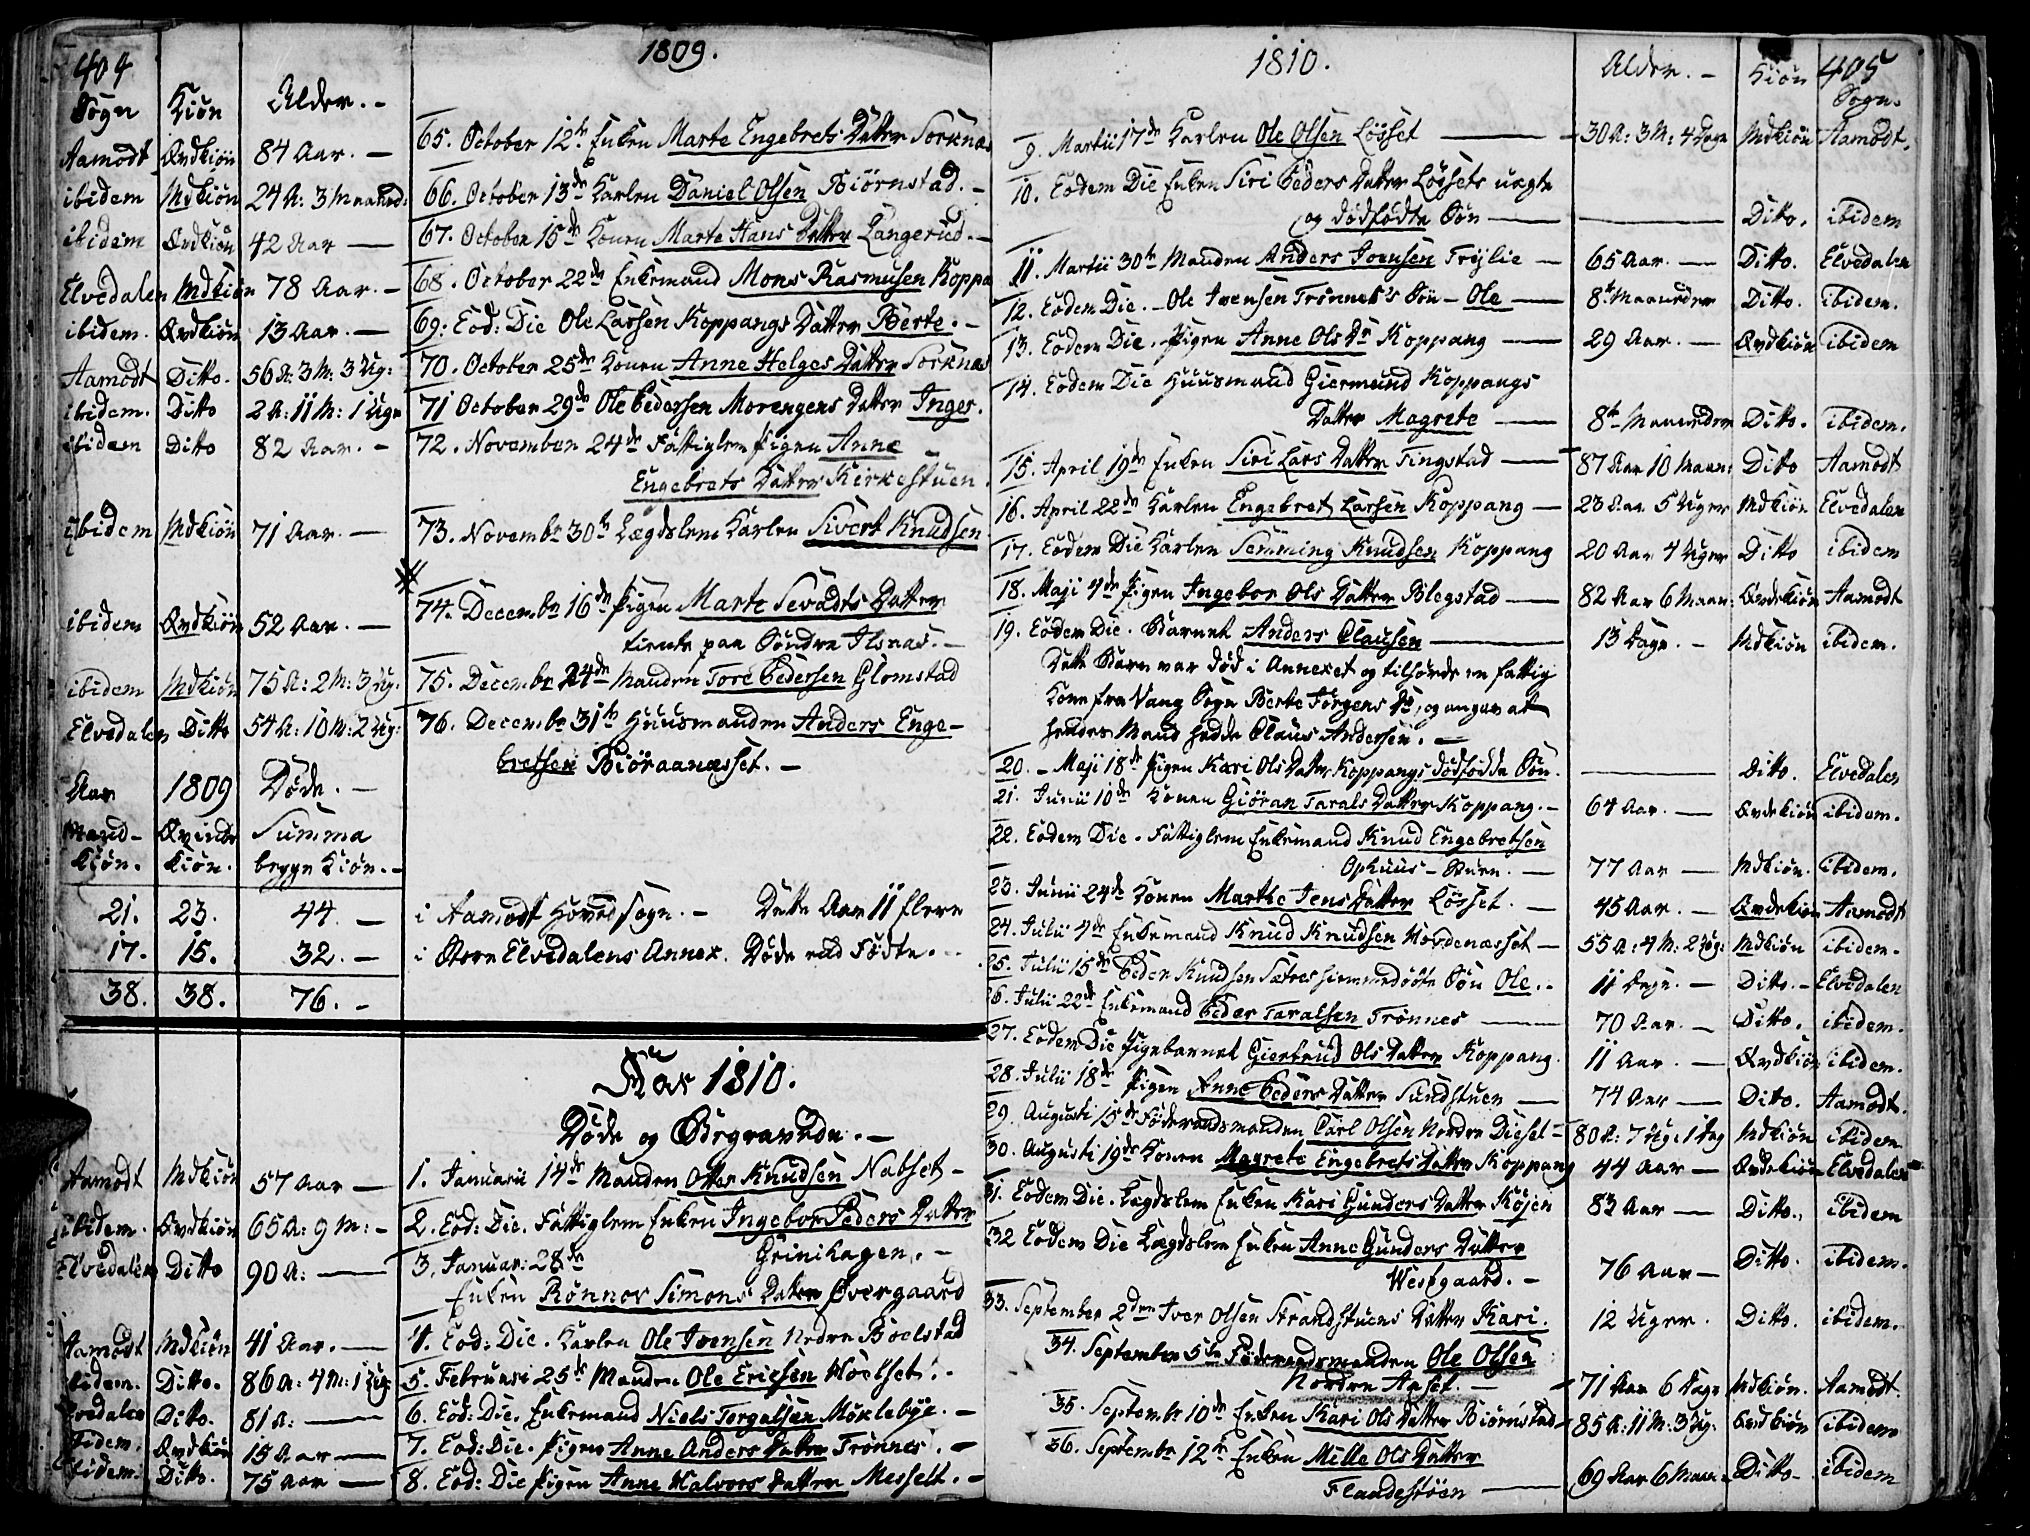 404
1809.
Sogn Kiön Alder.-
Aamodt Qvdkiön 84 Aar. — 65. October 12te Enken Marte Engebrets Datter Sorknæs
ibidem Mdkiön 24 A: 3 Maaned: 66. October 13de Karlen Daniel Olsen Biörnstad.-
ibidem Qvdkiön 42 Aar — 67. October 15de Konen Marte Hans Datter Langerud.-
Elvedalen Mdkiön 78 Aar.- 68. October 22de Enkemand Mons Rasmusen Koppa
ibidem. Qvdkiön 13 Aar.— 69: Eod: Die Ole Larsen Koppangs Datter Berte.-
Aamodt Ditto. 56 A: 3 M: 3 Ug: 70. October 25de Konen Anne Helges Datter Sorknæs
ibidem. Ditto 2 A: 11 M: 1 Uge 71 October 29de Ole Pedersen Morengens Datter Inger.
ibidem Ditto 82 Aar.- 72. November 24de Fattiglem Pigen Anne
Engebrets Datter Kirkestuen.
ibidem Mdkiön 71 Aar.— 73. Novembr 30te Lægdslem Karlen Sivert Knudsen
ibidem Qvdkiön 52 Aar.— 74. Decembr 16de Pigen Marte Sevadts Datter
tiente paa Söndre Ilsnæs.-
ibidem Mdkiön 75 A: 2 M: 3 Ug. 75. Decembr 24de Manden Tore Pedersen Glomstad
Elvedalen Ditto 54 A: 10 M: 2 Ug: 76. Decembr 31te Huusmanden Anders Enge-
bretsen Biöraanæsset.-
Aar 1809 Döde.-
Mand- Qvinde Summa
kiön. kiön. begge Kiön.-
21. 23. 44.- i Aamodt Hovedsogn.- Dette Aar 11 flere
17. 15. 32.- i Store Elvedalens Annex. Döde end Födte.-
38. 38. 76.-
Aar 1810.
Döde og Begravede.-
Aamodt Mdkiön 57 Aar — 1. Januarii 14de Manden Otter Knudsen Nabset-
ibidem. Qvdkiön 65 A: 9 M:- 2. Eod: Die. Fattiglem Enken Ingebor Peders Datter
Grinihagen.-
Elvedalen Ditto 90 A:— 3. Januar: 28de
Enken Rönnov Simons Datter Övergaard
Aamodt Mdkiön 41 Aar.— 4. Eod: Die. Karlen Ole Ivensen Nedre Boelstad
ibidem. Ditto. 86 A: 4 M: 1 Ug: 5. Februari 25de Manden Ole Ericsen Hoelset.-
Elvedalen Ditto. 81 A:— 6. Eod: Die. Enkemand Niels Torgalsen Möklebye.-
ibidem. Qvdkiön 15 Aar — 7. Eod: Die. Pigen Anne Anders Datter Trönnes.-
ibidem. Ditto. 75 Aar — 8. Eod: Die Pigen Anne Halvors Datter Messelt.-
1810.
Alder.- Kiön 405
Sogn.
9. Martii 17de Karlen Ole Olsen Lösset — 30 A: 3 M: 4 Dage Mdkiön Aamodt.
10. Eodem Die Enken Siri Peders Datter Lössets uægte
og dödfödte Sön — Ditto. ibidem
11. Martii 30te Manden Anders Ivensen Trylie — 65 Aar.— Ditto. Elvedalen
12. Eodem Die.- Ole Ivensen Trönnes's Sön - Ole — 8te Maaneder Ditto. ibidem.
13. Eodem Die. Pigen Anne Ols Dr Koppang — 29 Aar.— Qvdkiön ibidem
14. Eodem Die Huusmand Giermund Koppangs
Datter Magrete — 8te Maaneder Ditto. ibidem.
15. April 19de Enken Siri Lars Datter Tingstad — 87 Aar 10 Maan: Ditto Aamodt
16. April 22de Karlen Engebret Larsen Koppang — 23 Aar 5 Uger Mdkiön Elvedalen
17. Eodem Die Karlen Semming Knudsen Koppang 20 Aar 4 Uger Ditto ibidem
18. Maji 4de Pigen Ingebor Ols Datter Blegstad — 82 Aar 6 Maan: Qvdekiön Aamodt
19. Eodem Die. Barnet Anders Clausen — 13 Dage.- Mdkiön ibidem.
Dette Barn var död i Annexet og tilhörde en fattig
Kone fra Vang Sogn Berte Jörgens Dr, og angav at
hendes Mand hedde Claus Andersen.-
20.- Maji 18de Pigen Kari Ols Datter Koppangs dödfödde Sön. — Ditto. Elvedalen
21. Junii 10de Konen Giöran Tarals Datter Koppang.- 64 Aar.— Qvdekiön ibidem.
22. Eodem Die. Fattiglem Enkemand Knud Engebretsen
Ophuus-Buen.- 77 Aar — Mdkiön. ibidem.
23. Junii 24de Konen Marthe Jens Datter Lösset.- 45 Aar.- Qvdekiön Aamodt
24. Julii 4de Enkemand Knud Knudsen Hordenæsset - 55 A: 4 M: 2 Ug: Mdkiön ibidem.
25. Julii 15de Peder Knudsen Sætres Sön Ole.- 11 Dage.- Ditto.- Elvedalen
26. Julii 22de Enkemand Peder Taralsen Trönnes — 70 Aar.- Ditto. ibidem.
27. Eodem Die Pigebarnet Giertrud Ols Datter Koppang. 11 Aar.— Qvdkiön ibidem.
28. Julii 18de Pigen Anne Peders Datter Sundstuen — 74 Aar — Ditto. Aamodt.
29. Augusti 15de Föderaadsmanden Carl Olsen Nordre Dieset - 80 A: 7 Ug: 1 Dag Mdkiön ibidem.
30. Augusti 19de Konen Magrete Engebrets Datter Koppang 44 Aar — Qvdekiön Elvedalen
31. Eodem Die. Lægdslem Enken Kari Gunders Datter Köjen 83 Aar — Ditto. ibidem
32 Eodem Die Lægdslem Enken Anne Gunders Datter
Westgaard.- 76 Aar — Ditto. ibidem.
33. September 2den Iver Olsen Strandstuens Datter Kari. 12 Uger. Ditto. ibidem.
34. September 5te Föderaadsmanden Ole Olsen
Nordre Aaset.- 71 Aar 6 Dage Mdkiön. Aamodt.
35. Septembr 10de Enken Kari Ols Datter Biörnstad - 85 A: 11 M: 3 Ug. Qvdkiön ibidem
36. Septembr 12te Enken Mille Ols Datter
Flaadestöen — 69 Aar 6 Maan: Ditto- ibidem